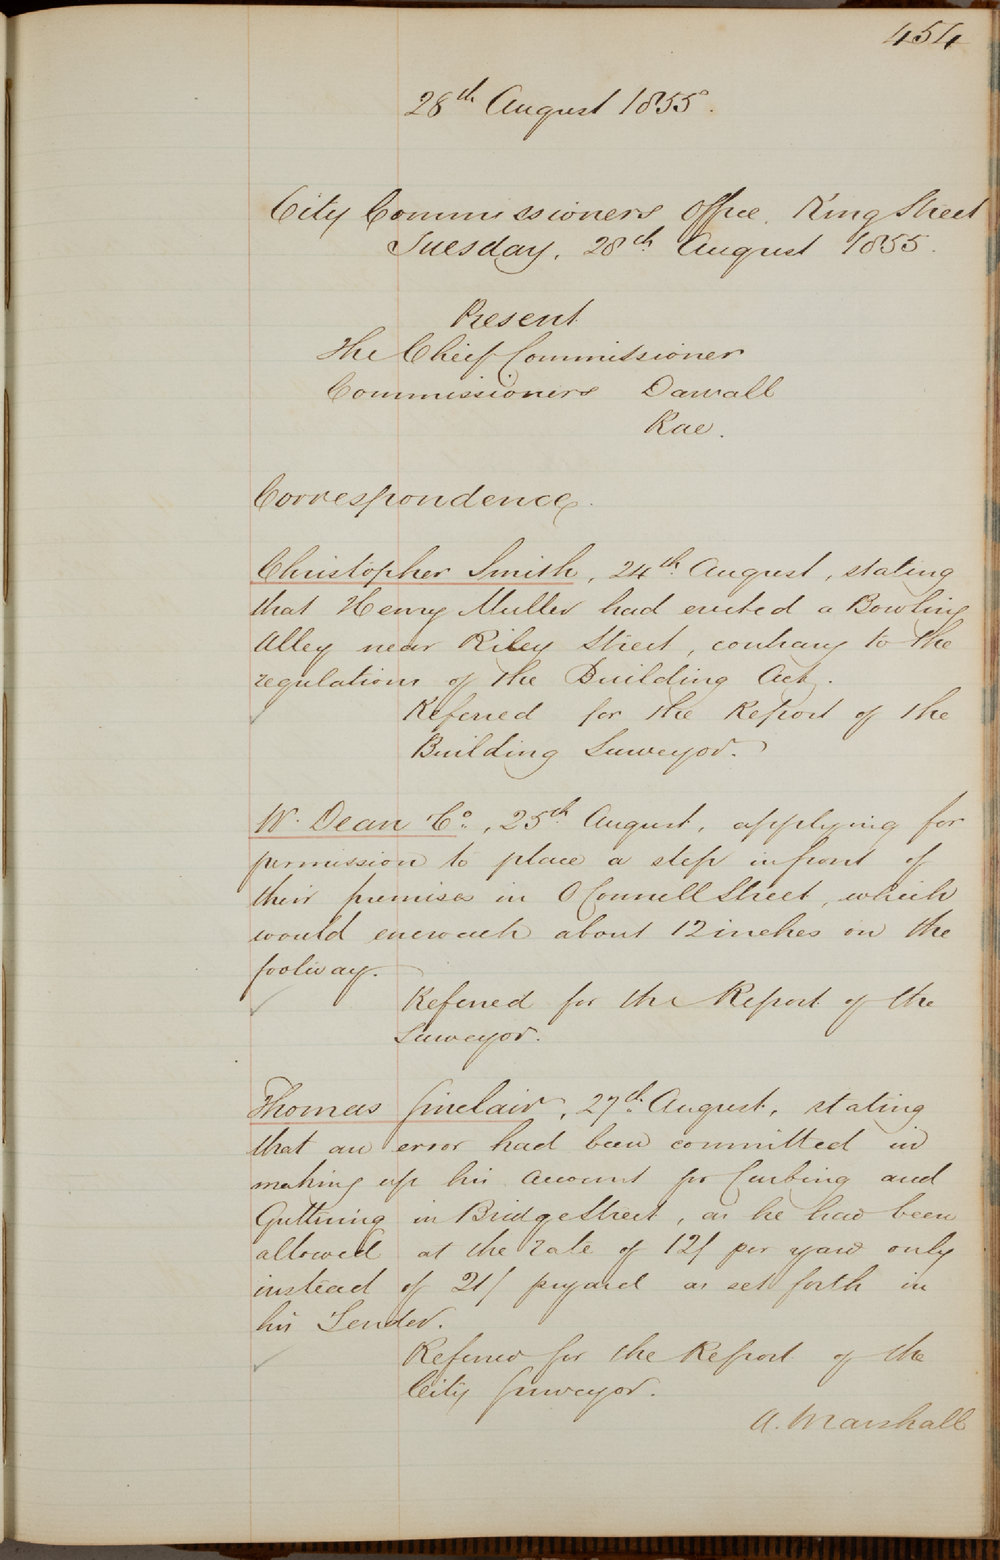 454
28th August 1855.
City Commissioners Office, King Street
Tuesday, 28th August 1855.
Present
The Chief Commissioner
Commissioners Darvall
Rae.
Correspondence.
Christopher Smith, 24th August, stating
that Henry Muller had erected a Bowling
Alley near Riley Street, contrary to the
regulations of the Building Act.
Referred for the Report of the
Building Surveyor.
W. Dean Co., 25th August, applying for
permission to place a step infront of
their premises in O'Connell Street, which
would encroach about 12 inches on the
footway.
Referred for the Report of the
Surveyor.
Thomas Sinclair, 27th August, stating
that an error had been committed in
making up his account for Curbing and
Guttering in Bridge Street, as he had been
allowed at the rate of 12/ per yard only
instead of 21/ per yard as set forth in
his Tender.
Referred for the Report of the
City Surveyor.
A. Marshall